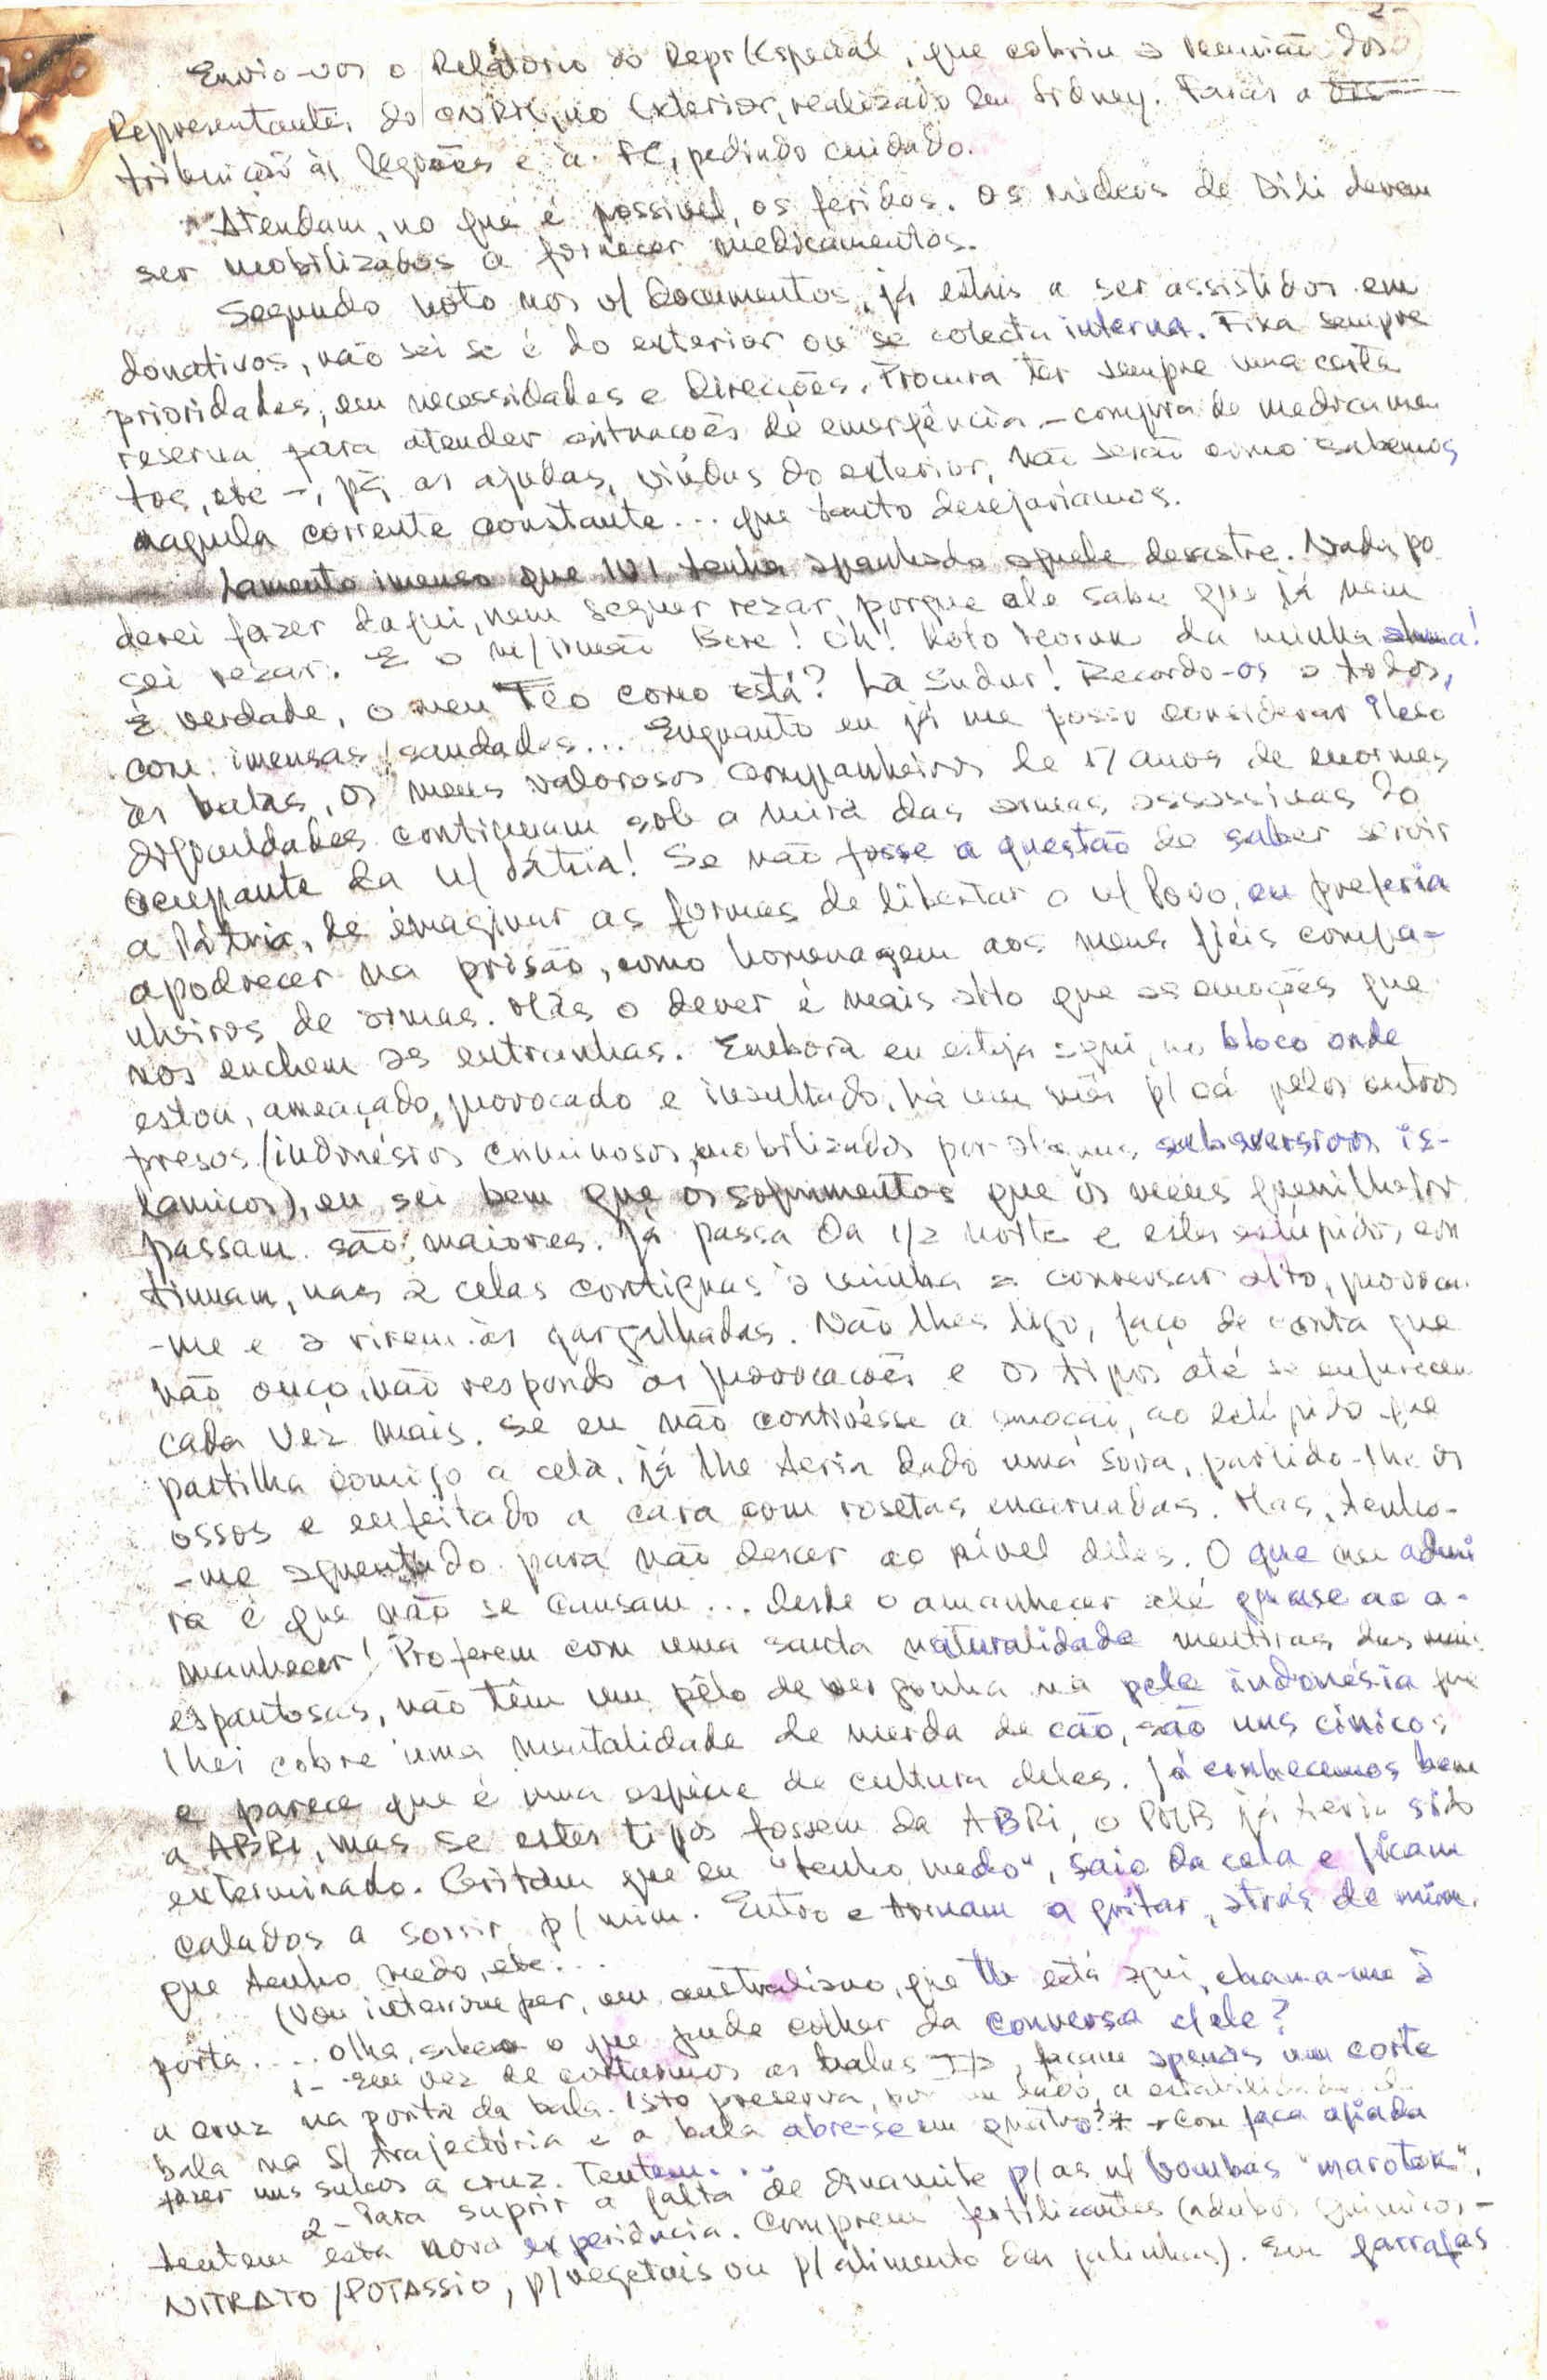 -2-
Envio-vos o Relatório do Repr/Especial, que cobriu a reunião dos
Representantes do CNRM, no Exterior, realizado em Sidney. Farás a dis-
tribuição às Regiões e à FC, pedindo cuidado.
Atendam, no que é possível, os feridos. Os médicos de Dili devem
ser mobilizados a fornecer medicamentos.
Segundo noto nos v/ Documentos, já estais a ser assistidos em
donativos, não sei se é do exterior ou se colecta interna. Fixa sempre
prioridades, em necessidades e direcções. Procura ter sempre uma certa
reserva para atender situações de emergência - compra de medicamen
tos, etc -, pq as ajudas, vindas do exterior, não serão como sabemos
naquela corrente constante... que tanto desejaríamos.
Lamento imenso que tenha apanhado aquele desastre. Nada po
derei fazer daqui, nem sequer rezar, porque ele sabe que já nem
sei rezar. E o m/ irmão Bere! Oh! Koto da minha alma!
É verdade, o meu Téo como está? La Sudur! Recordo-os a todos,
com imensas saudades... Enquanto eu já me posso considerar ileso
às balas, os meus valorosos companheiros de 17 anos de enormes
dificuldades continuam sob a mira das armas assassinas do
ocupante da n/ Pátria! Se não fosse a questão de saber servir
a Pátria, de imaginar as formas de libertar o n/ Povo, eu preferia
apodrecer na prisão, como homenagem aos meus fiéis compa-
nheiros de armas. Mas o dever é mais alto que as emoções que
nos enchem as entranhas. Embora eu esteja aqui, no bloco onde
estou, ameaçado, provocado e insultado, há um mês p/ cá pelos outros
presos (indonésios criminosos, mobilizados por alguns subversivos is-
lamicos), eu sei bem que os sofrimentos que os meus guerrilheiros
passam são maiores. Já passa da 1/2 noite e estes estúpidos con
tinuam, nas 2 celas contíguas à minha a conversar alto, provocar-
-me e a rirem às gargalhadas. Não lhes ligo, faço de conta que
não ouço, não respondo às provocações e os tipos até se enfurecem
cada vez mais. Se eu não contivésse a emoção, ao estúpido que
partilha comigo a cela, já lhe teria dado uma sova, partido-lhe os
ossos e enfeitado a cara com rosetas encarnadas. Mas, tenho-
-me aguentado para não descer ao nível deles. O que me admi
ra é que não se cansam... desde o amanhecer até quase ao a-
manhecer! Proferem com uma santa naturalidade mentiras das mais
espantosas, não têm um pêlo de vergonha na pele indonésia que
lhes cobre uma mentalidade de merda de cão, são uns cínicos
e parece que é uma espécie de cultura deles. Já conhecemos bem
a ABRI, mas se estes tipos fossem da ABRI, o PMB já teria sido
exterminado. Gritam que eu "tenho medo", saio da cela e ficam
calados a sorrir p/ mim. Entro e tornam a gritar, atrás de mim,
que tenho medo, etc...
(Vou interromper, um australiano, que tb está aqui, chama-me à
porta.... Olha, sabem o que pude colher da conversa c/ ele?
1- Em vez de cortarmos as balas, façam apenas um corte
a cruz na ponta da bala. Isto preserva, por um lado, a estabilidade da
bala na s/ trajectória e a bala abre-se em quatro? → com faca afiada
fazer uns sulcos a cruz. Tentem...
2- Para suprir a falta de dinamite p/ as n/ bombas "marotas",
tentem esta nova experiência. Comprem fertilizantes (adubos químicos -
NITRATO/POTASSIO, p/ vegetais ou p/ alimento das galinhas). Em garrafas